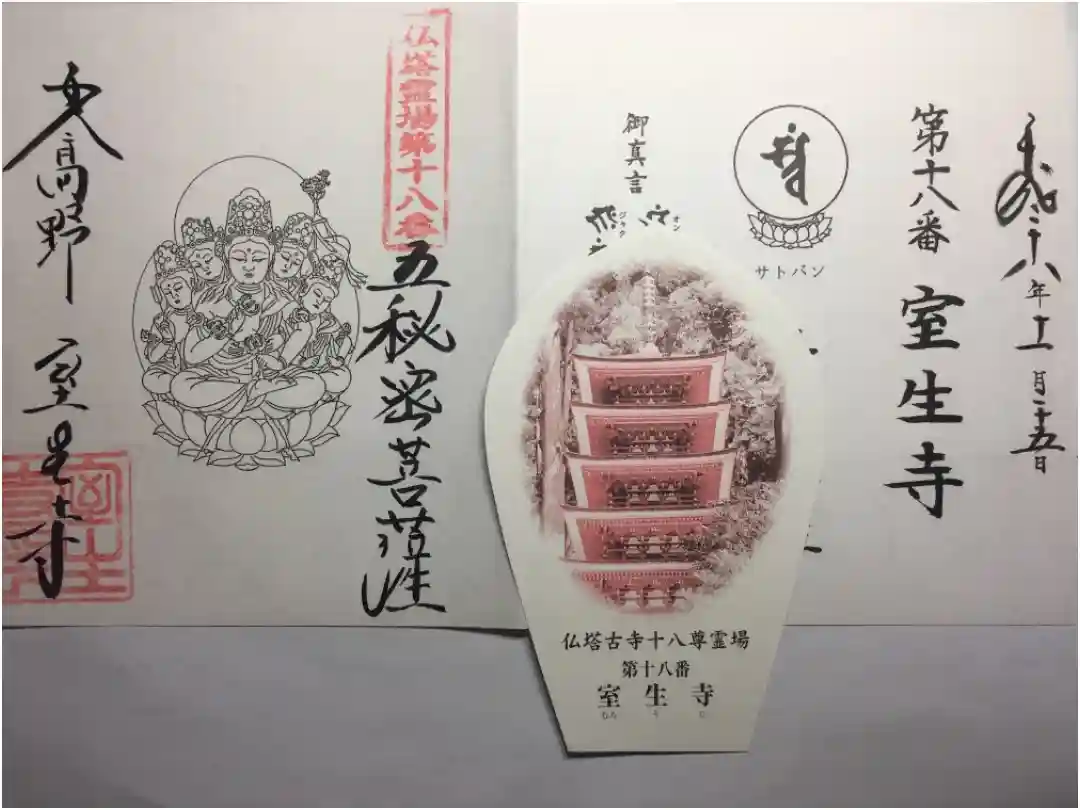 平成二十八年十一月二十五日
第十八番 室生寺
サトバン
御真言
オン
仏塔霊場第十八番
五秘密菩薩
女人高野 室生寺
仏塔古寺十八尊霊場
第十八番
室生寺
むろ う じ